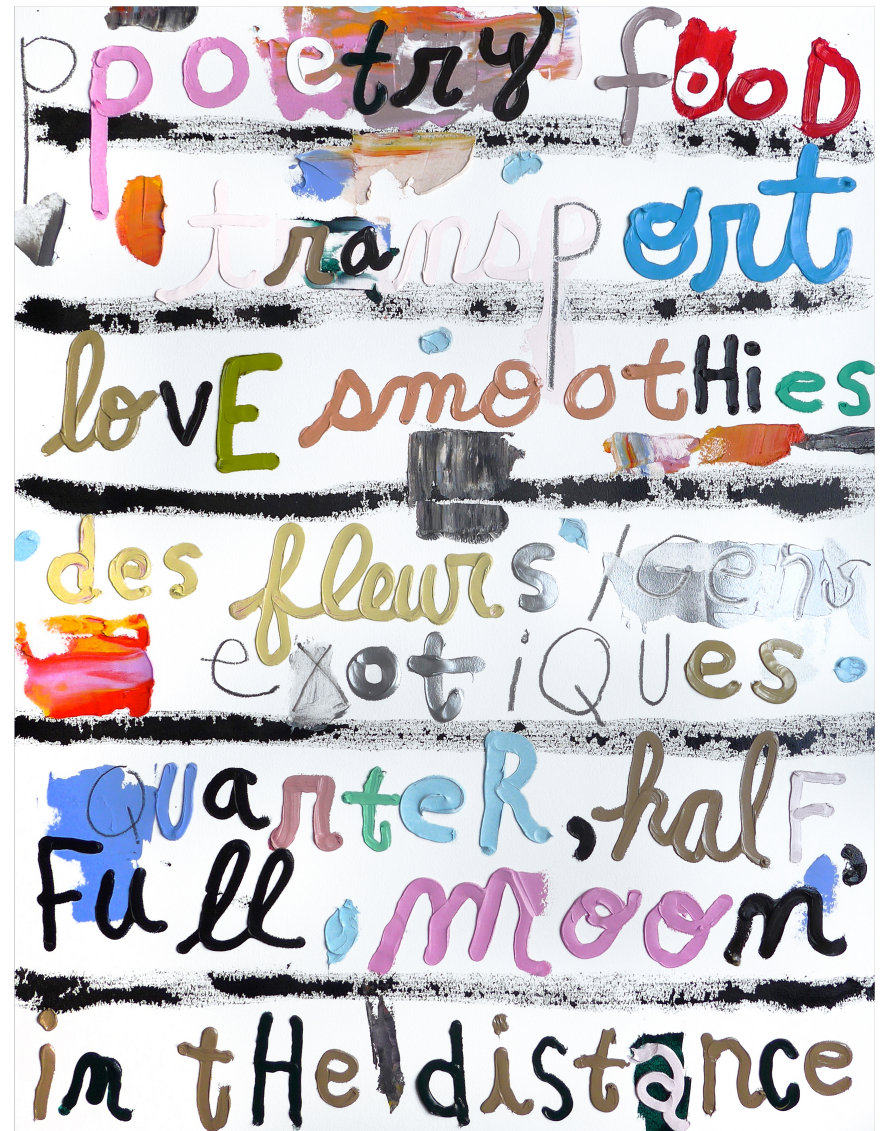 ppoetry fooD
transport
lovE smootHies
des fleurs / Gens
exotiQues
QuarteR, halF,
Full moon
in tHe distance